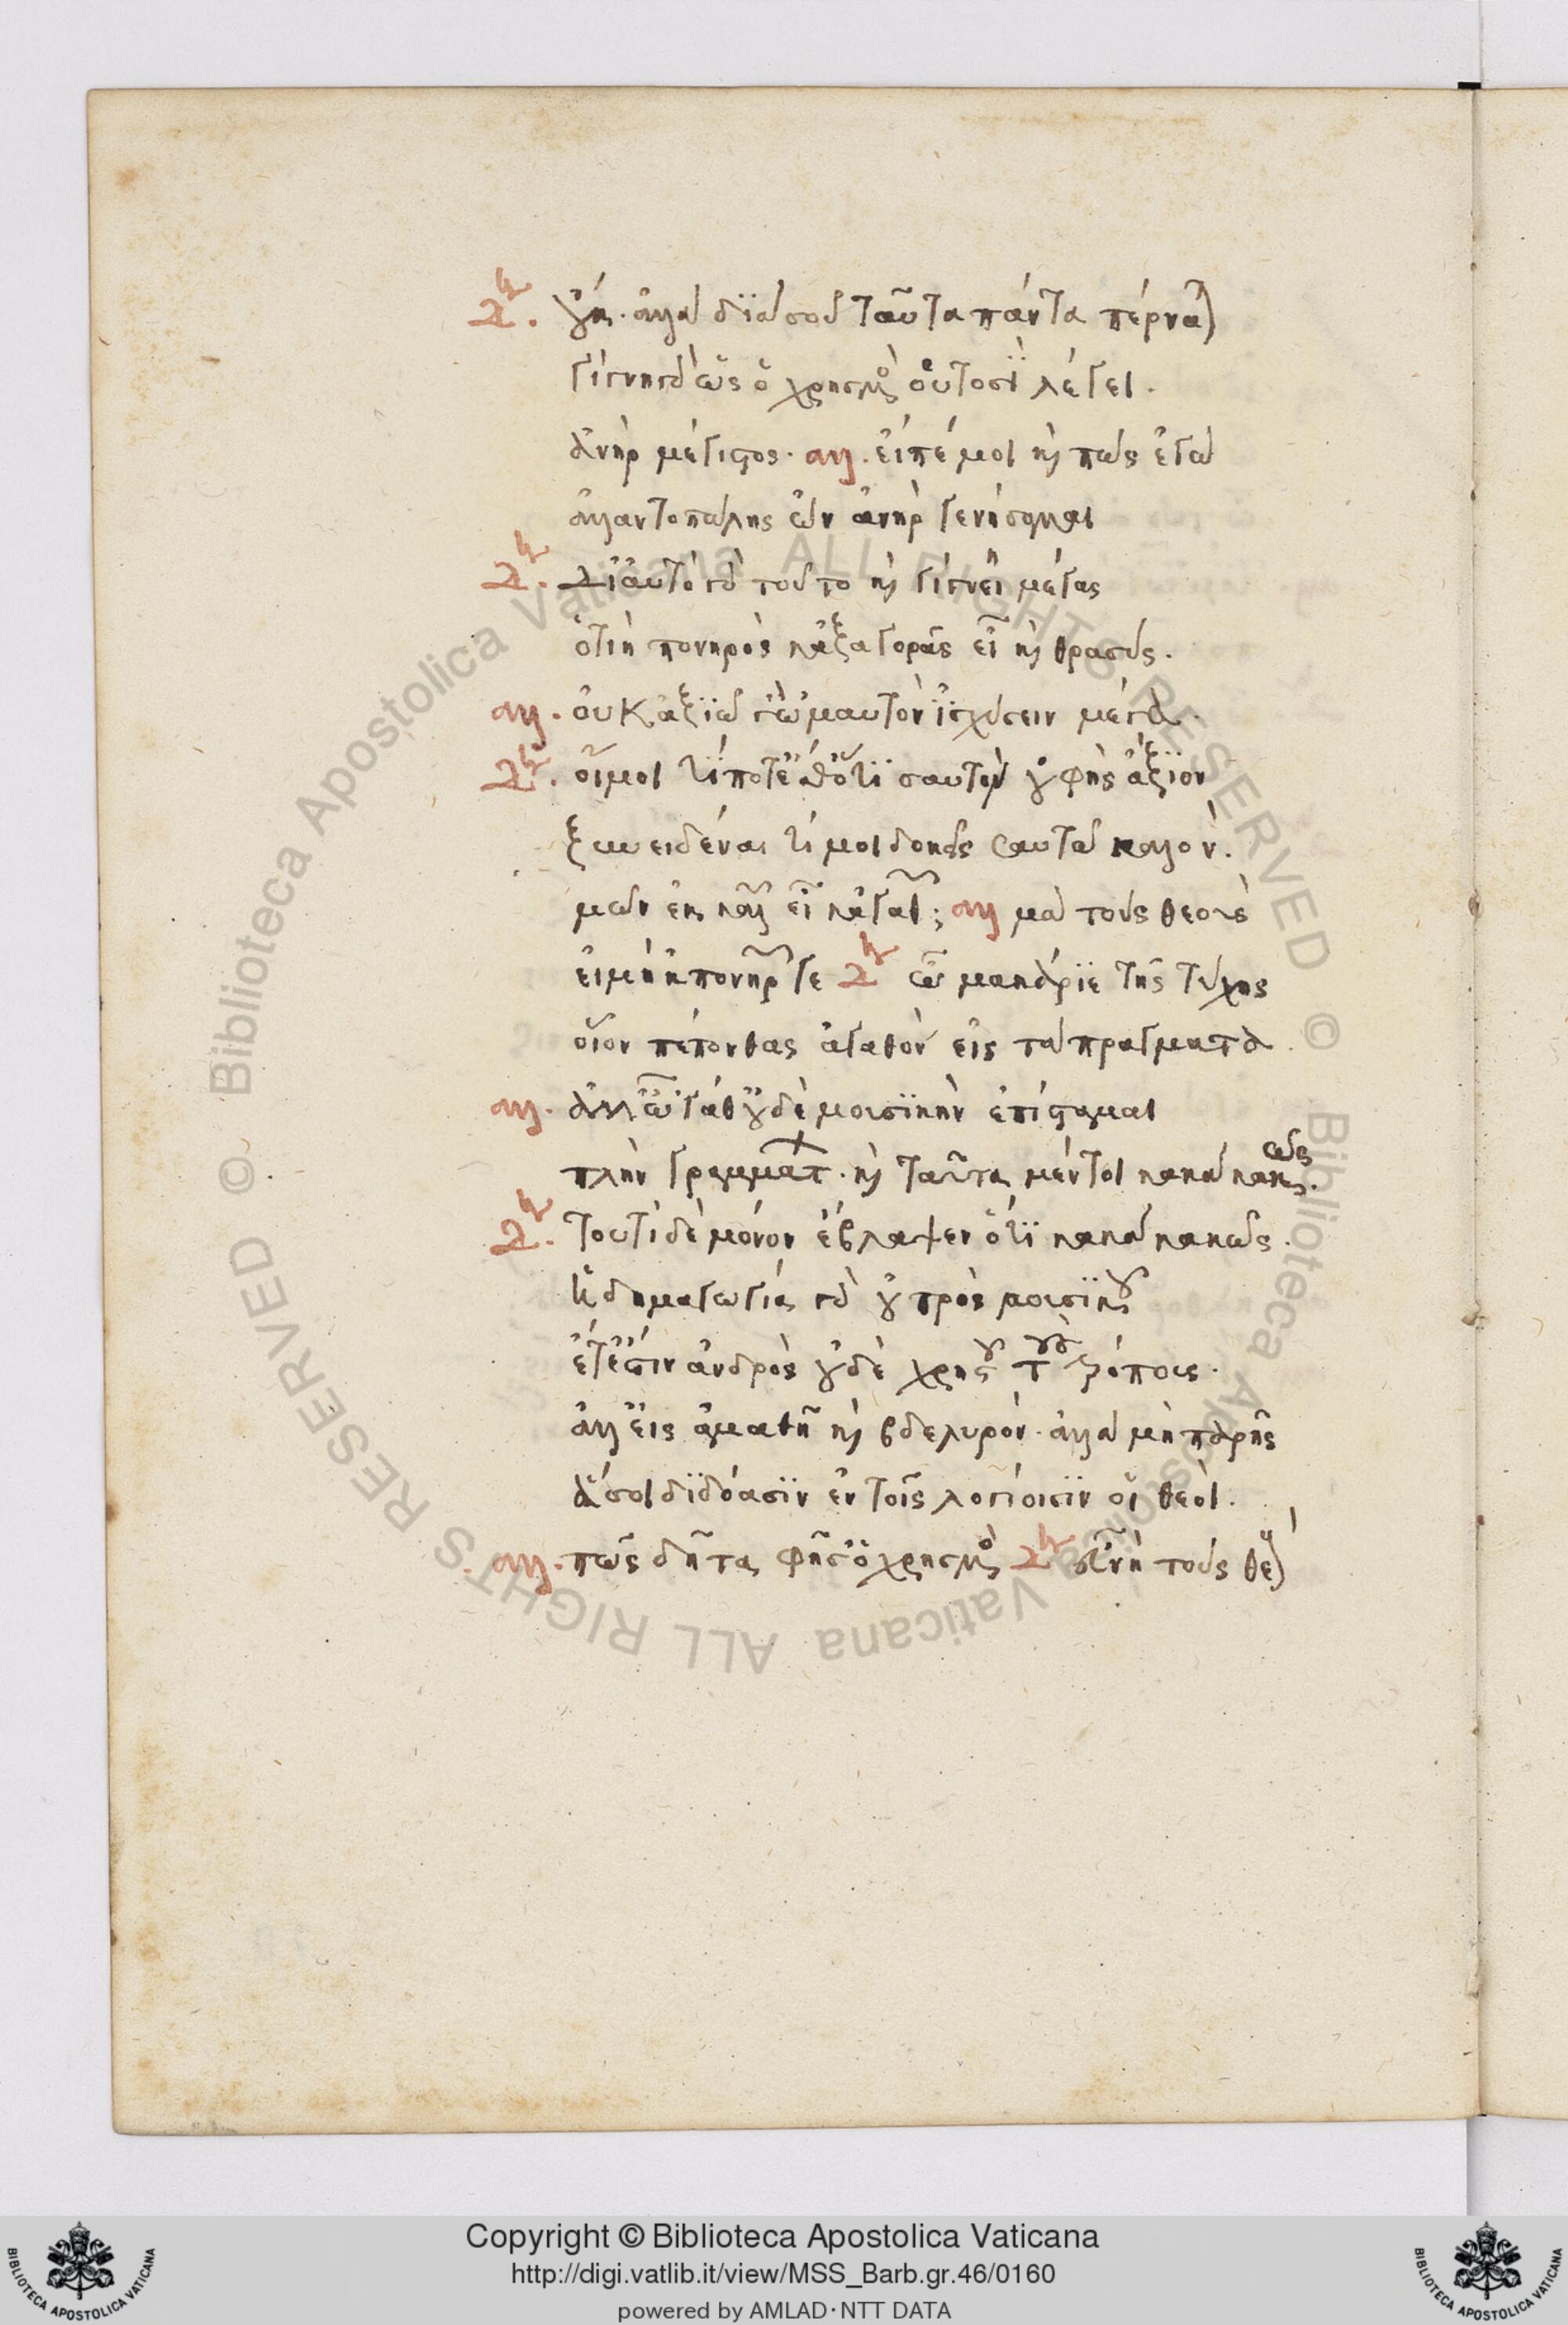 δη. οὔκ. ἀλλὰ διὰ σοῦ ταῦτα πάντα πέρναται
γίγνη γὰρ ὡς ὁ χρησμὸς οὑτοσὶ λέγει.
ἀνὴρ μέγιστος. αλ. εἰπέ μοι καὶ πῶς ἐγὼ
ἀλλαντοπώλης ὢν ἀνὴρ γενήσομαι
δη. δι' αὐτὸ γὰρ τοῦτο καὶ γίγνει μέγας
ὁτιὴ πονηρὸς κἀξ ἀγορᾶς εἶ καὶ θρασύς.
αλ. οὐκ ἀξιῶ 'γὼ 'μαυτὸν ἰσχύσειν μέγα.
δη. οἴμοι τί ποτ' ἔσθ' ὅτι σαυτὸν οὐ φῂς ἄξιον
ξυνειδέναι τί μοι δοκεῖς σαυτῷ καλόν.
μῶν ἐκ καλῶν εἶ κἀγαθῶν; αλ μὰ τοὺς θεοὺς
εἰ μὴ 'κ πονηρῶν γε δη ὦ μακάριε τῆς τύχης
οἷον πέπονθας ἀγαθὸν εἰς τὰ πράγματα.
αλ. ἀλλ' ὦ 'γάθ' οὐδὲ μουσικὴν ἐπίσταμαι
πλὴν γραμμάτων. καὶ ταῦτα μέντοι κακὰ κακῶς.
δη. τουτὶ δὲ μόνον ἔβλαψεν ὅτι κακὰ κακῶς.
ἡ δημαγωγία γὰρ οὐ πρὸς μουσικοῦ
ἔτ' ἐστὶν ἀνδρὸς οὐδὲ χρηστοῦ τοὺς τρόπους.
ἀλλ' εἰς ἀμαθῆ καὶ βδελυρόν. ἀλλὰ μὴ παρῇς
ἅ σοι διδόασιν ἐν τοῖς λογίοισιν οἱ θεοί.
αλ. πῶς δῆτα φῆσ' ὁ χρησμὸς δη εὖ νὴ τοὺς θεοὺς
Copyright © Biblioteca Apostolica Vaticana
http://digi.vatlib.it/view/MSS_Barb.gr.46/0160
powered by AMLAD·NTT DATA